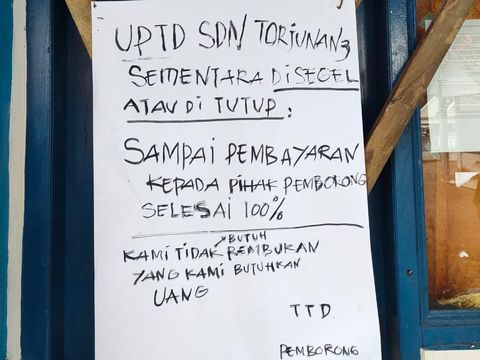 UPTD SDN TORJUNAN 3
SEMENTARA DISEGEL
ATAU DI TUTUP :
SAMPAI PEMBAYARAN
KEPADA PIHAK PEMBORONG
SELESAI 100%
BUTUH
KAMI TIDAK REMBUKAN
YANG KAMI BUTUHKAN
UANG
TTD
PEMBORONG